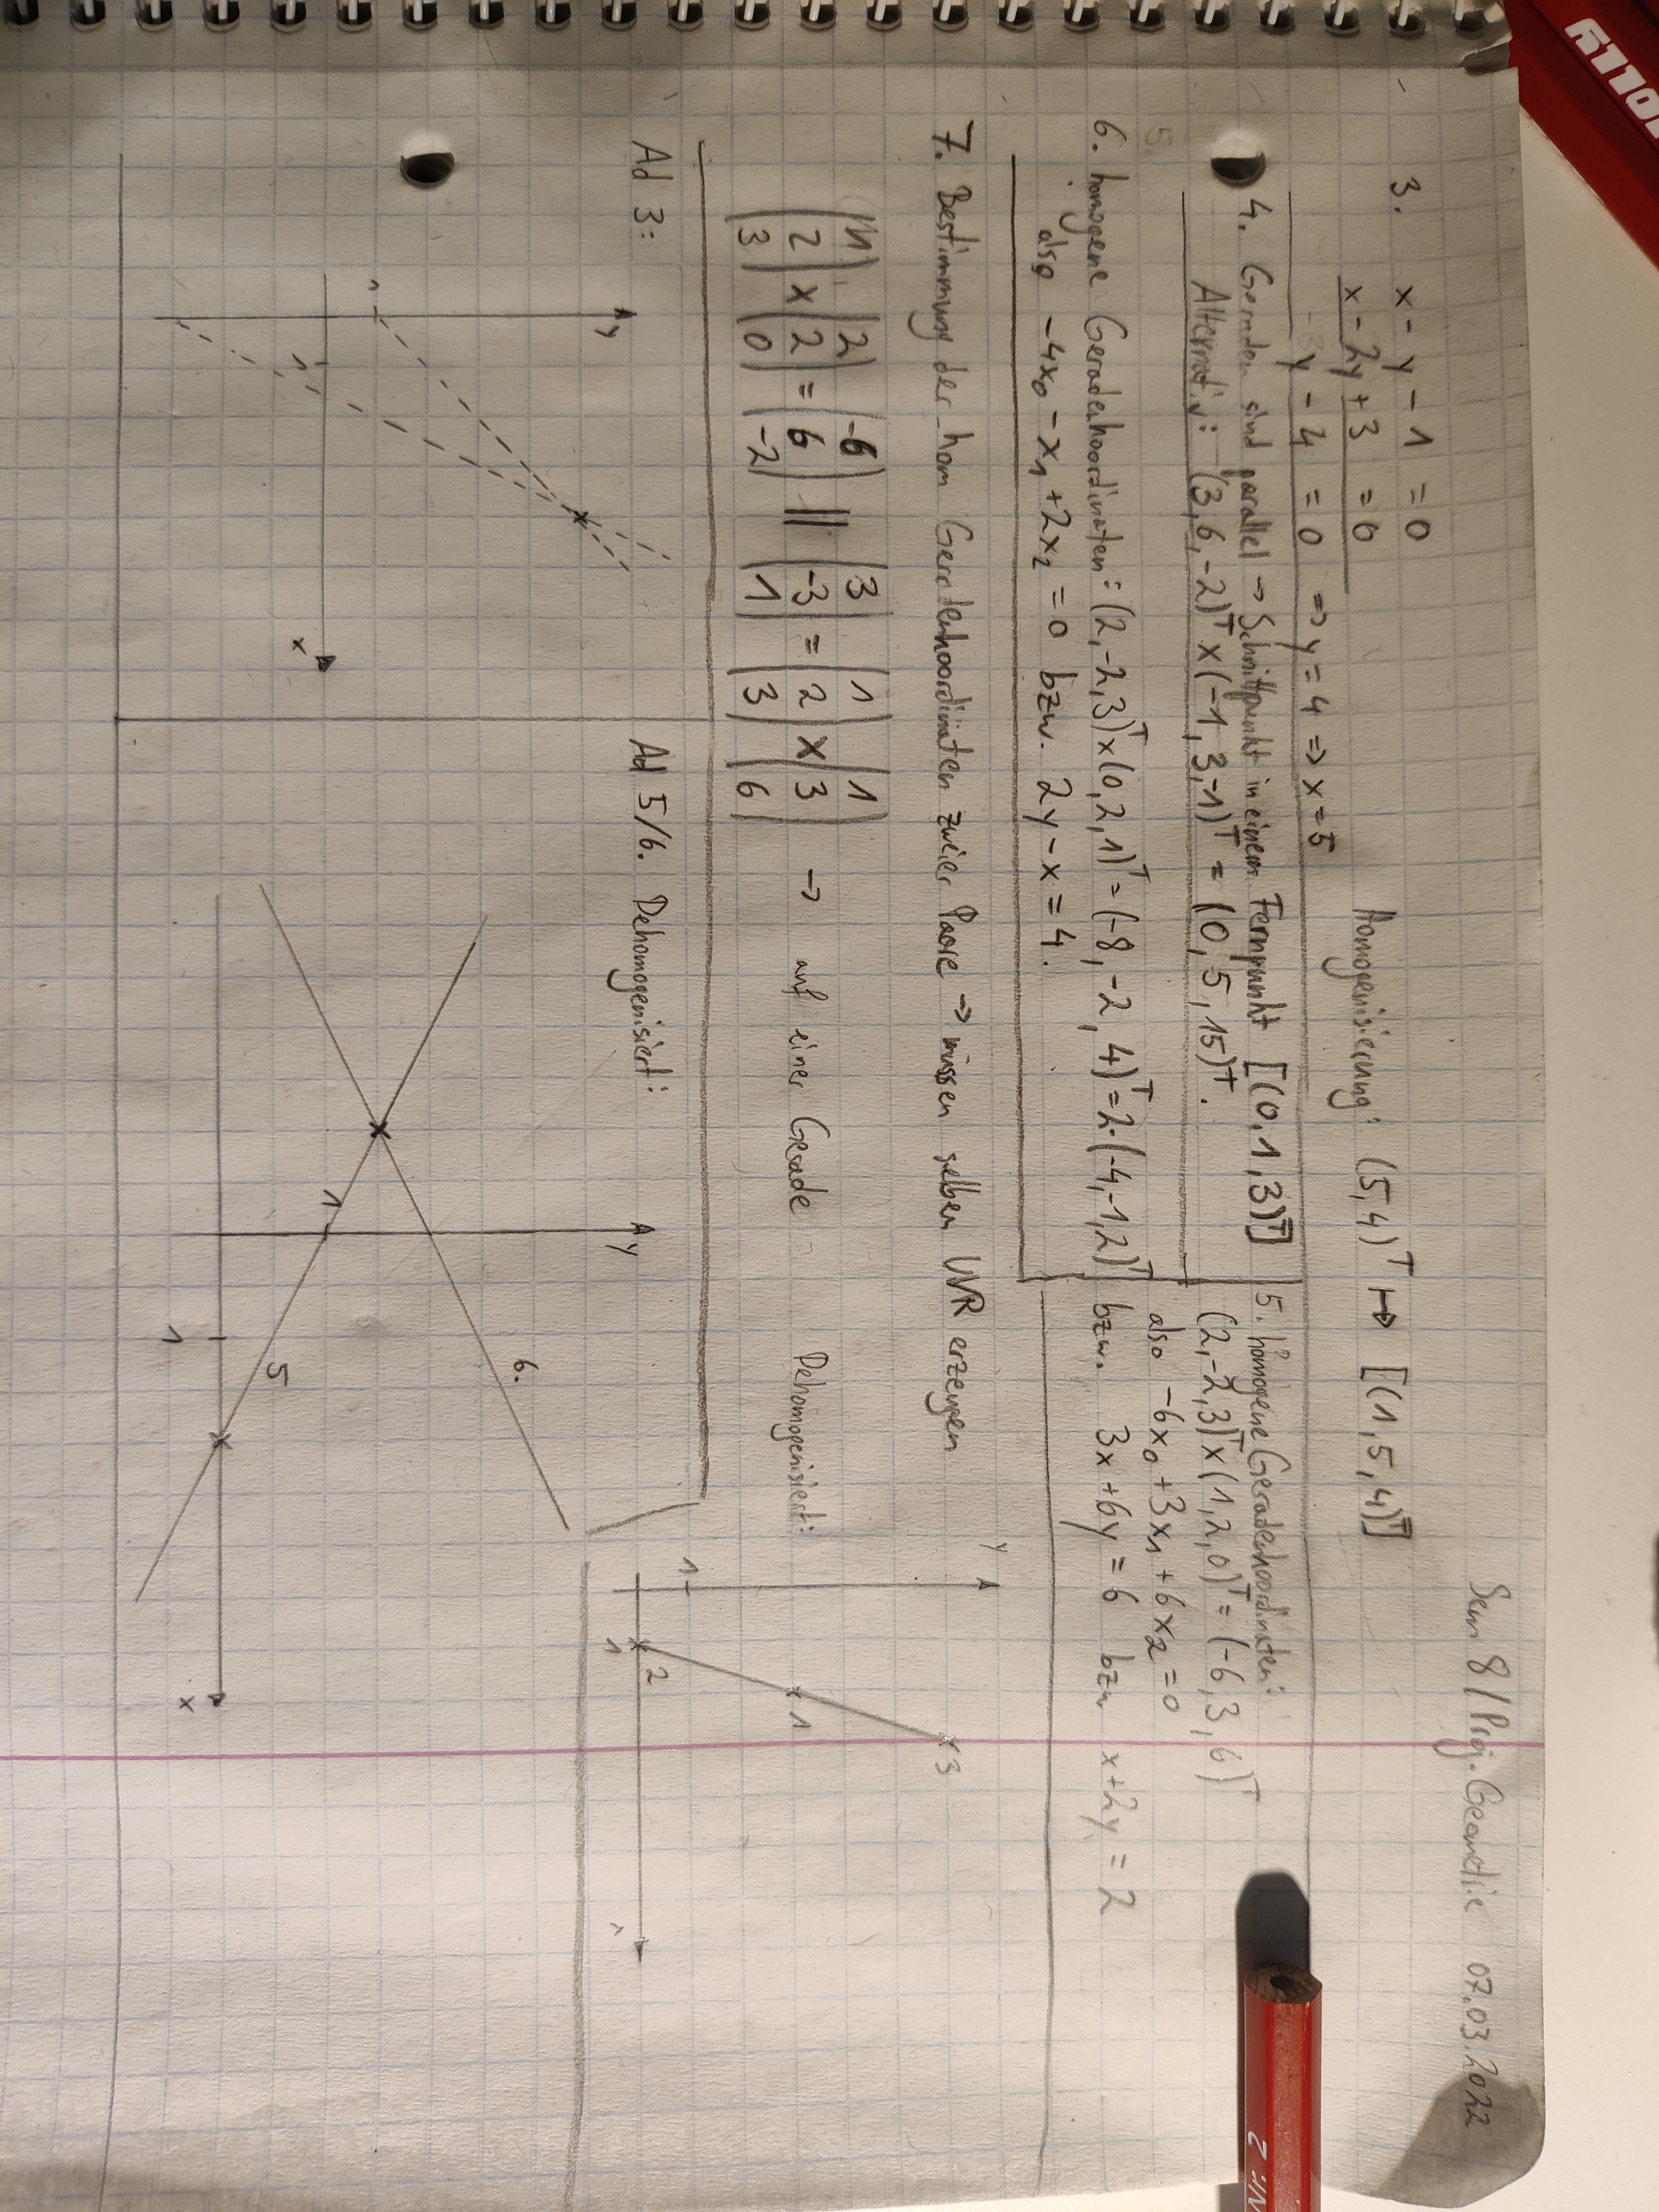 Sem 8 / Proj. Geometrie 07.03.2022
3. x - y - 1 = 0
x - 2y + 3 = 0
y - 4 = 0 => y = 4 => x = 5
Homogenisierung: (5,4)^T ↦ [(1,5,4)^T]
4. Geraden sind parallel → Schnittpunkt in einem Fernpunkt [(0,1,3)^T]
Alternativ: (3,6,-2)^T × (-1,3,-1)^T = (0,5,15)^T.
5. homogene Geradenkoordinaten:
(2,-2,3)^T × (1,2,0)^T = (-6,3,6)^T
also -6x₀ + 3x₁ + 6x₂ = 0
bzw. 3x + 6y = 6 bzw x + 2y = 2
5.
6. homogene Geradenkoordinaten: (2,-2,3)^T × (0,2,1)^T = (-8,-2,4)^T = 2·(-4,-1,2)^T
also -4x₀ - x₁ + 2x₂ = 0 bzw. 2y - x = 4.
7. Bestimmung der hom Geradenkoordinaten zweier Paare → müssen selben UVR erzeugen
(1 2 3) × (2 2 0) = (-6 6 -2) || (3 -3 1) = (1 2 3) × (1 3 6) → auf einer Gerade
Dehomogenisiert:
y
3
1
1
2
1
x
Ad 3:
y
1
1
x
Ad 5/6. Dehomogenisiert:
y
6.
1
5
1
x
Nr. 2